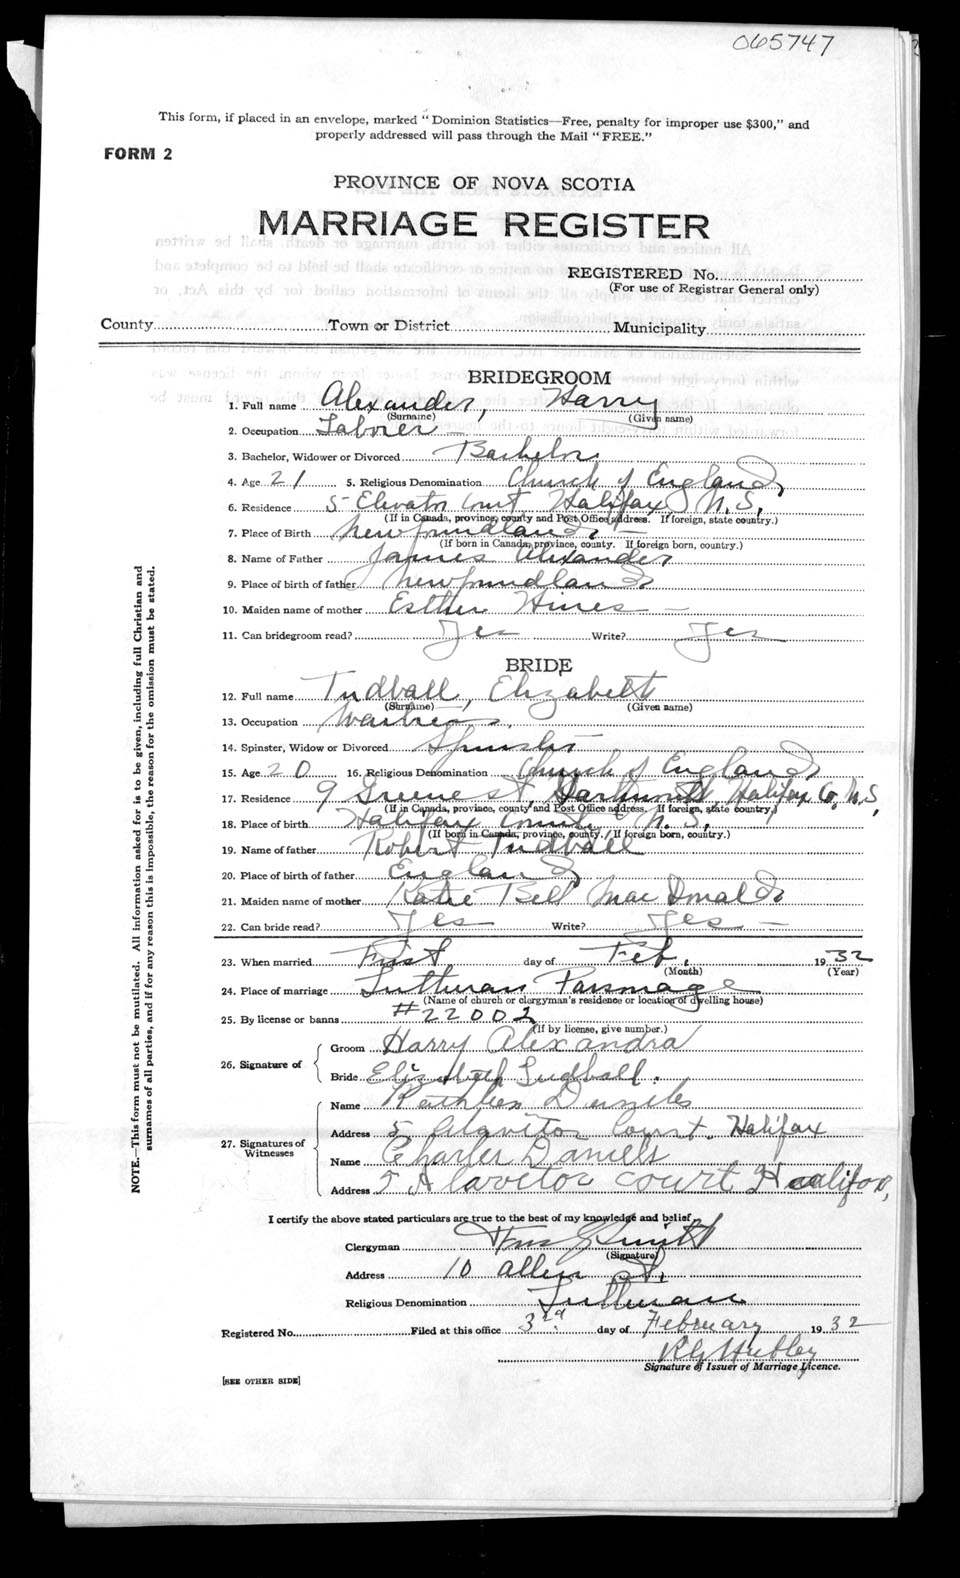 065747
This form, if placed in an envelope, marked "Dominion Statistics—Free, penalty for improper use $300," and
properly addressed will pass through the Mail "FREE."
FORM 2
PROVINCE OF NOVA SCOTIA
MARRIAGE REGISTER
REGISTERED No.
(For use of Registrar General only)
County Town or District Municipality
BRIDEGROOM
1. Full name Alexander, Harry
(Surname) (Given name)
2. Occupation Laborer
3. Bachelor, Widower or Divorced Bachelor
4. Age 21 5. Religious Denomination Church of England
6. Residence 5 Elevator Court Halifax N.S.
(If in Canada, province, county and Post Office address. If foreign, state country.)
7. Place of Birth Newfoundland
(If born in Canada, province, county. If foreign born, country.)
8. Name of Father James Alexander
9. Place of birth of father Newfoundland
10. Maiden name of mother Esther Hines
11. Can bridegroom read? Yes Write? Yes
BRIDE
12. Full name Tudball, Elizabeth
(Surname) (Given name)
13. Occupation
14. Spinster, Widow or Divorced Spinster
15. Age 20 16. Religious Denomination Church of England
17. Residence 9 Greene St, Dartmouth, Halifax Co. N.S,
(If in Canada, province, county and Post Office address. If foreign, state country.)
18. Place of birth Halifax County N.S.
(If born in Canada, province, county. If foreign born, country.)
19. Name of father Robert Tudball
20. Place of birth of father England
21. Maiden name of mother Katie Bell MacDonald
22. Can bride read? Yes Write? Yes
23. When married First day of Feb. 1932
(Month) (Year)
24. Place of marriage Lutheran Parsonage
(Name of church or clergyman's residence or location of dwelling house)
25. By license or banns #22002
(If by license, give number.)
26. Signature of Groom Harry Alexandra
Bride Elizabeth Tudball.
27. Signatures of Witnesses
Name Kathleen Daniels
Address 5 Elavitor Court. Halifax
Name Charles Daniels
Address 5 Alavetor court Halifax,
I certify the above stated particulars are true to the best of my knowledge and belief.
Clergyman Smith
(Signature)
Address 10 Allen St.
Religious Denomination Lutheran
Registered No. Filed at this office 3rd day of February 1932
Signature of Issuer of Marriage Licence.
[SEE OTHER SIDE]
NOTE.—This form must not be mutilated. All information asked for is to be given, including full Christian and
surnames of all parties, and if for any reason this is impossible, the reason for the omission must be stated.